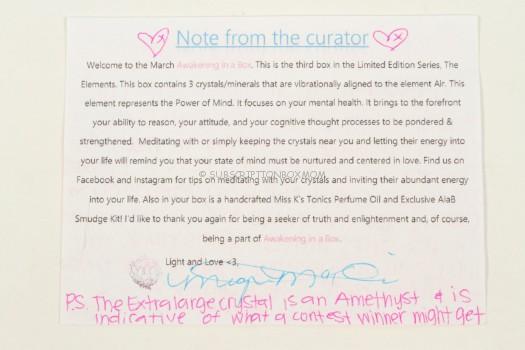 Note from the curator
Welcome to the March Awakening in a Box. This is the third box in the Limited Edition Series, The
Elements. This box contains 3 crystals/minerals that are vibrationally aligned to the element Air. This
element represents the Power of Mind. It focuses on your mental health. It brings to the forefront
your ability to reason, your attitude, and your cognitive thought processes to be pondered &
strengthened. Meditating with or simply keeping the crystals near you and letting their energy into
your life will remind you that your state of mind must be nurtured and centered in love. Find us on
© SUBSCRIPTIONBOXMOM
Facebook and Instagram for tips on meditating with your crystals and inviting their abundant energy
into your life. Also in your box is a handcrafted Miss K's Tonics Perfume Oil and Exclusive AIaB
Smudge Kit! I'd like to thank you again for being a seeker of truth and enlightenment and, of course,
being a part of Awakening in a Box.
Light and Love <3,
P.S. The Extra large crystal is an Amethyst & is
indicative of what a contest winner might get